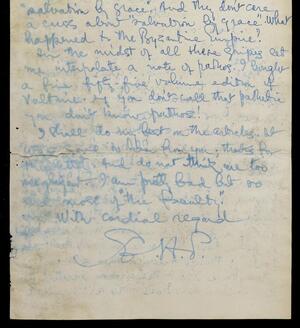 "salvation by grace", And they don't care
a cuss about "salvation by grace". What
happened to the Byzantine Empire?
In the midst of all these gripes let
me interpolate a note of pathos. I bought
a fine fifty five volume edition of
Voltaire. If you don't call that pathetic
you don't know pathos!
I shall do my best on the articles. It
was to hear from you; thanks for
And do not think me too
I am pretty bad but so
are most of the
With cordial regard